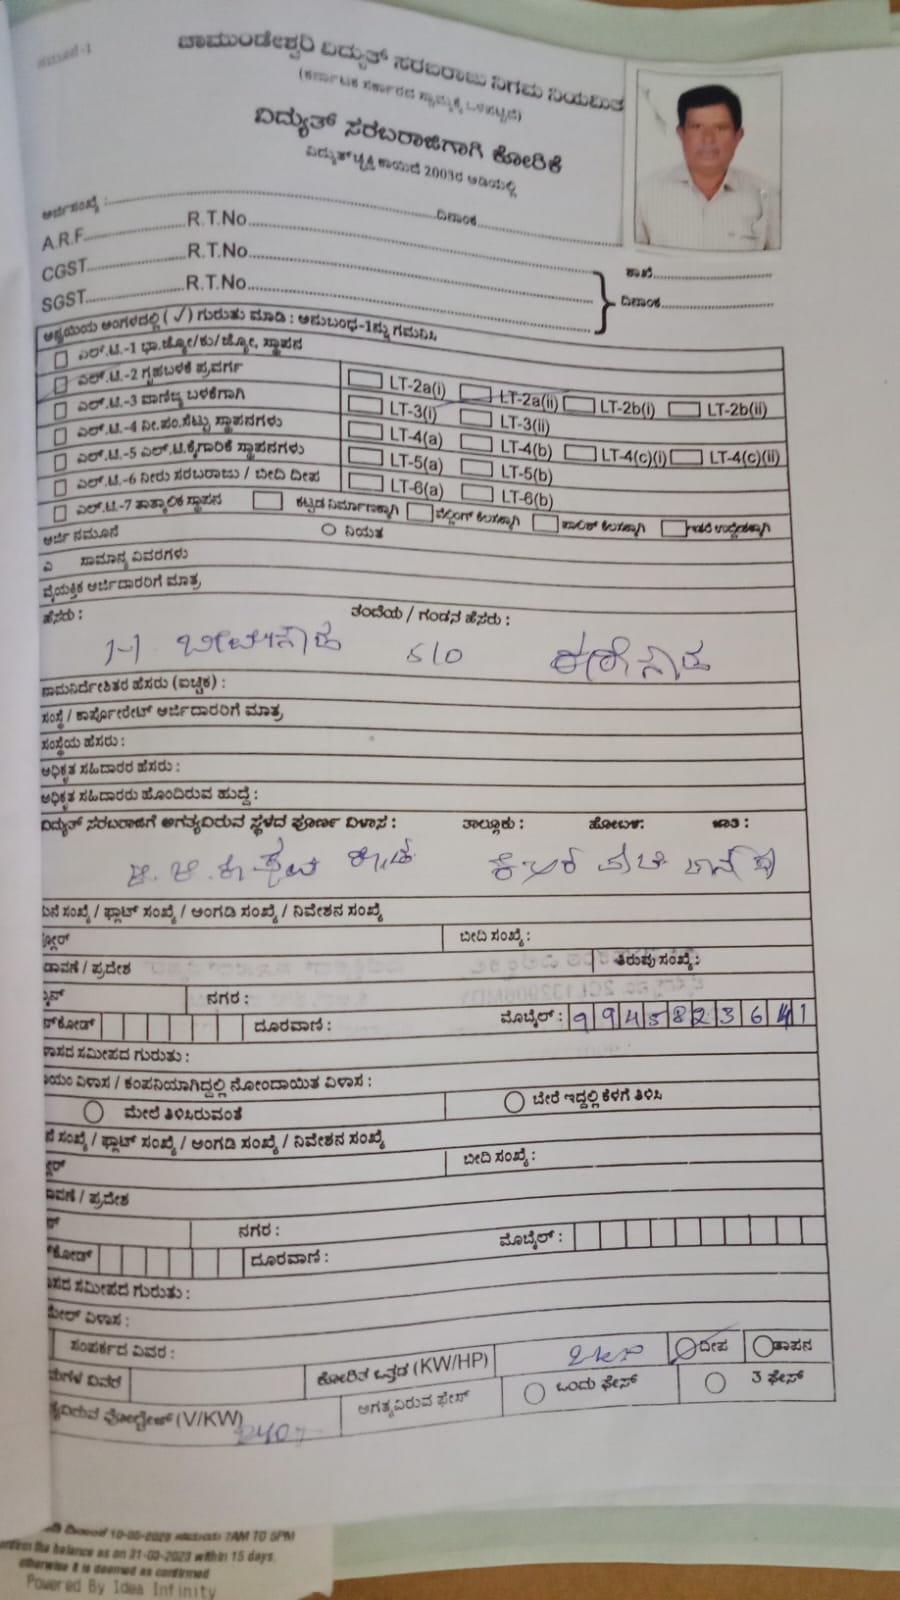 ನಮೂನೆ -1
ಚಾಮುಂಡೇಶ್ವರಿ ವಿದ್ಯುತ್ ಸರಬರಾಜು ನಿಗಮ ನಿಯಮಿತ
(ಕರ್ನಾಟಕ ಸರ್ಕಾರದ ಸ್ವಾಮ್ಯಕ್ಕೆ ಒಳಪಟ್ಟಿದೆ)
ವಿದ್ಯುತ್ ಸರಬರಾಜಿಗಾಗಿ ಕೋರಿಕೆ
ವಿದ್ಯುತ್ ಕಾಯಿದೆ 2003ರ ಅಡಿಯಲ್ಲಿ
ಅರ್ಜಿಸಂಖ್ಯೆ : ದಿನಾಂಕ
A.R.F. R.T.No
CGST R.T.No
SGST R.T.No
ಶಾಖೆ
ದಿನಾಂಕ
ಆಯ್ಕೆಯ ಅಂಗಳದಲ್ಲಿ (✓) ಗುರುತು ಮಾಡಿ : ಅನುಬಂಧ-1ನ್ನು ಗಮನಿಸಿ
ಎಲ್.ಟಿ.-1 ಭಾ.ಜ್ಯೋ/ಕು/ಜ್ಯೋ, ಸ್ಥಾಪನ
ಎಲ್.ಟಿ.-2 ಗೃಹಬಳಕೆ ಪ್ರವರ್ಗ LT-2a(i) LT-2a(ii) LT-2b(i) LT-2b(ii)
ಎಲ್.ಟಿ.-3 ವಾಣಿಜ್ಯ ಬಳಕೆಗಾಗಿ LT-3(i) LT-3(ii)
ಎಲ್.ಟಿ.-4 ನೀ.ಪಂ.ಸೆಟ್ಟು ಸ್ಥಾಪನಗಳು LT-4(a) LT-4(b) LT-4(c)(i) LT-4(c)(ii)
ಎಲ್.ಟಿ.-5 ಎಲ್.ಟಿ.ಕೈಗಾರಿಕೆ ಸ್ಥಾಪನಗಳು LT-5(a) LT-5(b)
ಎಲ್.ಟಿ.-6 ನೀರು ಸರಬರಾಜು / ಬೀದಿ ದೀಪ LT-6(a) LT-6(b)
ಎಲ್.ಟಿ.-7 ತಾತ್ಕಾಲಿಕ ಸ್ಥಾಪನ ಕಟ್ಟಡ ನಿರ್ಮಾಣಕ್ಕಾಗಿ ವೆಲ್ಡಿಂಗ್ ಕೆಲಸಕ್ಕಾಗಿ ಪಾಲಿಶ್ ಕೆಲಸಕ್ಕಾಗಿ ಇತರೆ ಉದ್ದೇಶಕ್ಕಾಗಿ
ಅರ್ಜಿ ನಮೂನೆ ನಿಯತ
ಎ ಸಾಮಾನ್ಯ ವಿವರಗಳು
ವೈಯಕ್ತಿಕ ಅರ್ಜಿದಾರರಿಗೆ ಮಾತ್ರ
ಹೆಸರು : ತಂದೆಯ / ಗಂಡನ ಹೆಸರು :
S/O
ನಾಮನಿರ್ದೇಶಿತರ ಹೆಸರು (ಐಚ್ಛಿಕ) :
ಸಂಸ್ಥೆ / ಕಾರ್ಪೋರೇಟ್ ಅರ್ಜಿದಾರರಿಗೆ ಮಾತ್ರ
ಸಂಸ್ಥೆಯ ಹೆಸರು :
ಅಧಿಕೃತ ಸಹಿದಾರರ ಹೆಸರು :
ಅಧಿಕೃತ ಸಹಿದಾರರು ಹೊಂದಿರುವ ಹುದ್ದೆ :
ವಿದ್ಯುತ್ ಸರಬರಾಜಿಗೆ ಅಗತ್ಯವಿರುವ ಸ್ಥಳದ ಪೂರ್ಣ ವಿಳಾಸ : ತಾಲ್ಲೂಕು : ಹೋಬಳಿ: ಜಾತಿ :
ಮನೆ ಸಂಖ್ಯೆ / ಫ್ಲಾಟ್ ಸಂಖ್ಯೆ / ಅಂಗಡಿ ಸಂಖ್ಯೆ / ನಿವೇಶನ ಸಂಖ್ಯೆ
ಫ್ಲೋರ್ ಬೀದಿ ಸಂಖ್ಯೆ :
ಬಡಾವಣೆ / ಪ್ರದೇಶ ತಿರುವು ಸಂಖ್ಯೆ :
ನಗರ :
ಪಿನ್‌ಕೋಡ್ ದೂರವಾಣಿ : ಮೊಬೈಲ್ : 9945823641
ಸಮೀಪದ ಗುರುತು :
ಖಾಯಂ ವಿಳಾಸ / ಕಂಪನಿಯಾಗಿದ್ದಲ್ಲಿ ನೋಂದಾಯಿತ ವಿಳಾಸ :
ಮೇಲೆ ತಿಳಿಸಿರುವಂತೆ ಬೇರೆ ಇದ್ದಲ್ಲಿ ಕೆಳಗೆ ತಿಳಿಸಿ
ಮನೆ ಸಂಖ್ಯೆ / ಫ್ಲಾಟ್ ಸಂಖ್ಯೆ / ಅಂಗಡಿ ಸಂಖ್ಯೆ / ನಿವೇಶನ ಸಂಖ್ಯೆ
ಫ್ಲೋರ್ ಬೀದಿ ಸಂಖ್ಯೆ :
ಬಡಾವಣೆ / ಪ್ರದೇಶ
ನಗರ :
ಪಿನ್‌ಕೋಡ್ ದೂರವಾಣಿ : ಮೊಬೈಲ್ :
ಸಮೀಪದ ಗುರುತು :
ಇಮೇಲ್ ವಿಳಾಸ :
ಸಂಪರ್ಕದ ವಿವರ :
ವಿವರ ಕೋರಿತ ಒತ್ತಡ (KW/HP) 2kw ದೀಪ ತಾಪನ
ಅಗತ್ಯವಿರುವ ವೋಲ್ಟೇಜ್ (V/KW) 240v ಅಗತ್ಯವಿರುವ ಫೇಸ್ ಒಂದು ಫೇಸ್ 3 ಫೇಸ್
10-05-2023 7AM TO 5PM
confirm the balance as on 31-03-2023 within 15 days,
otherwise it is deemed as confirmed
Powered By Idea Infinity